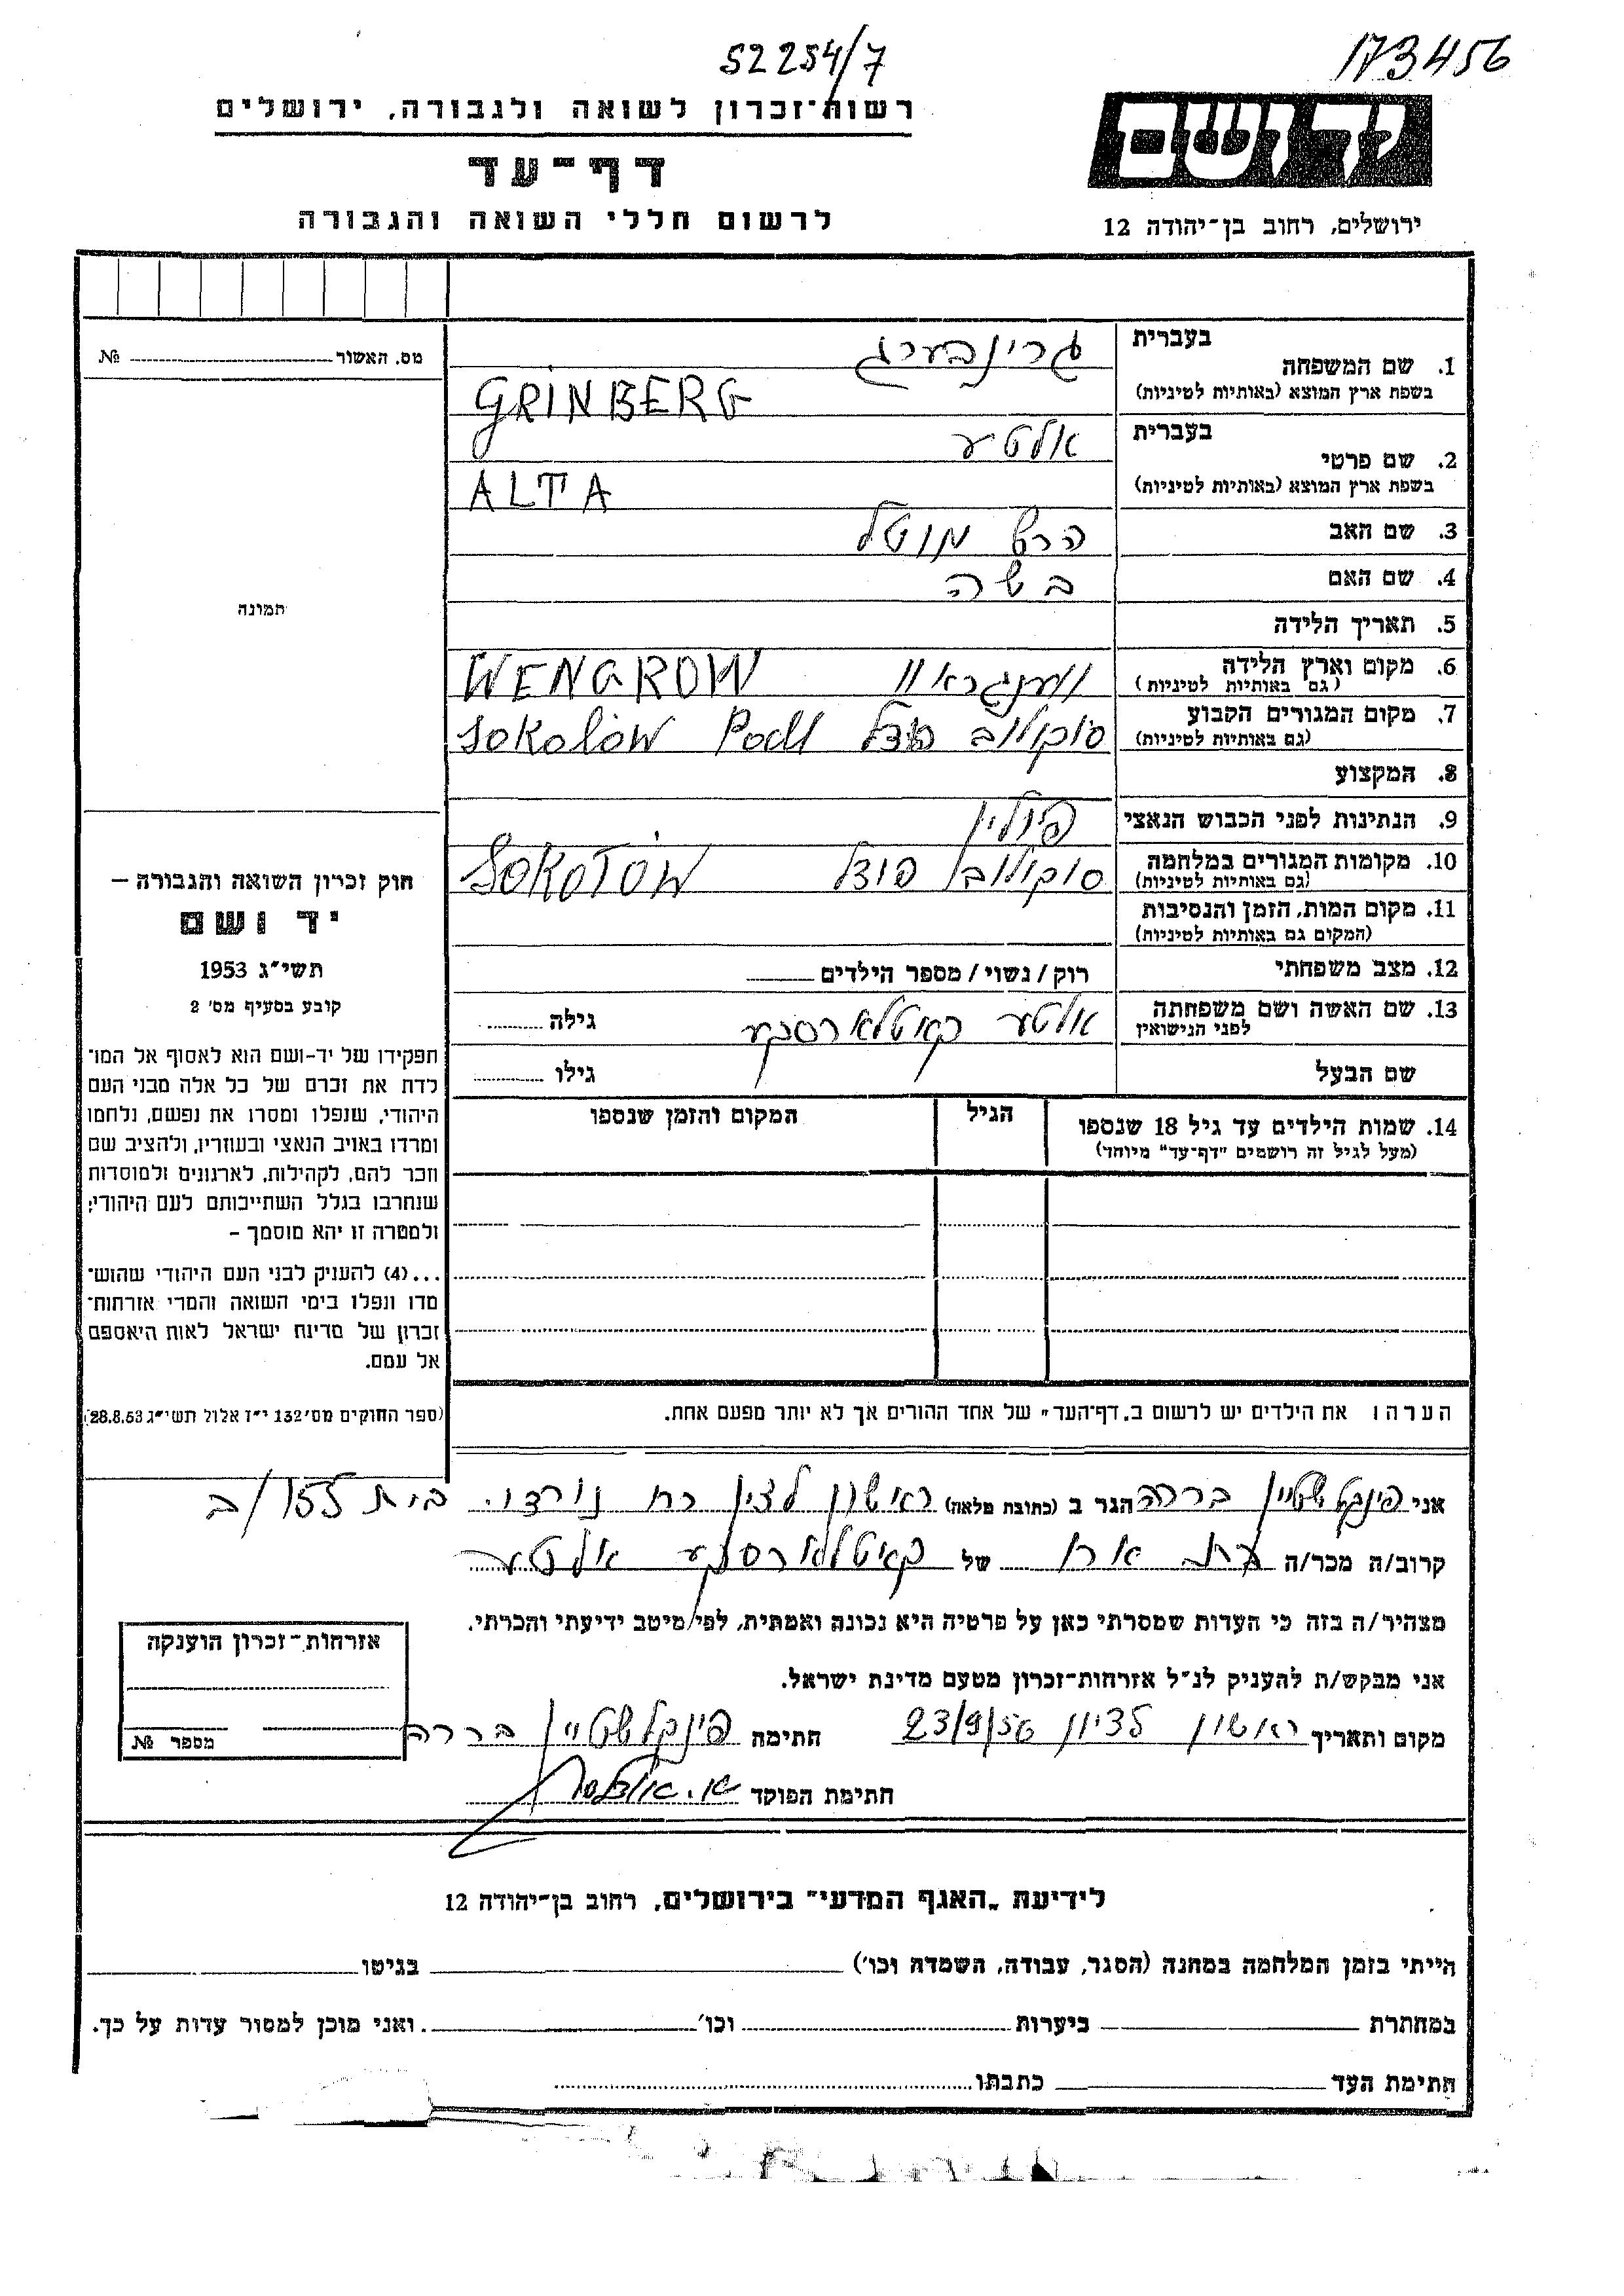 52254/7
173456
רשות־זכרון לשואה ולגבורה, ירושלים
יד ושם
דף־עד
לרשום חללי השואה והגבורה
ירושלים, רחוב בן־יהודה 12
בעברית גרינבערג
1. שם המשפחה
בשפת ארץ המוצא (באותיות לטיניות) GRINBERG
בעברית אלטע
2. שם פרטי
בשפת ארץ המוצא (באותיות לטיניות) ALTA
3. שם האב הרש מוטל
4. שם האם בשה
5. תאריך הלידה
6. מקום וארץ הלידה ווענגראוו WENGROW
(גם באותיות לטיניות)
7. מקום המגורים הקבוע סוקולוב פודל SOKOLÓW Podl
(גם באותיות לטיניות)
8. המקצוע
9. הנתינות לפני הכבוש הנאצי פולין
10. מקומות המגורים במלחמה סוקולוב פודל SOKOŁÓW
(גם באותיות לטיניות)
11. מקום המות, הזמן והנסיבות
(המקום גם באותיות לטיניות)
12. מצב משפחתי רוק/נשוי/מספר הילדים
13. שם האשה ושם משפחתה אלטע קאטלארסקע גילה
לפני הנישואין
שם הבעל גילו
14. שמות הילדים עד גיל 18 שנספו הגיל המקום והזמן שנספו
(מעל לגיל זה רושמים "דף־עד" מיוחד)
הערה: את הילדים יש לרשום ב„דף־העד" של אחד ההורים אך לא יותר מפעם אחת.
מס. האשור №
תמונה
חוק זכרון השואה והגבורה –
יד ושם
תשי"ג 1953
קובע בסעיף מס' 2
תפקידו של יד-ושם הוא לאסוף אל המו־
לדת את זכרם של כל אלה מבני העם
היהודי, שנפלו ומסרו את נפשם, נלחמו
ומרדו באויב הנאצי ובעוזריו, ולהציב שם
וזכר להם, לקהילות, לארגונים ולמוסדות
שנחרבו בגלל השתייכותם לעם היהודי;
ולמטרה זו יהא מוסמך –
...(4) להעניק לבני העם היהודי שהוש־
מדו ונפלו בימי השואה והמרי אזרחות־
זכרון של מדינת ישראל לאות היאספם
אל עמם.
(ספר החוקים מס' 132 י"ז אלול תשי"ג 28.8.53)
אני פינקלשטיין ברכה הגר ב (כתובת מלאה) ראשון לציון רח נורדו. בית 155/ב
קרוב/ה מכר/ה בת אח של קאטלארסקע אלטע
מצהיר/ה בזה כי העדות שמסרתי כאן על פרטיה היא נכונה ואמתית, לפי מיטב ידיעתי והכרתי.
אני מבקש/ת להעניק לנ"ל אזרחות־זכרון מטעם מדינת ישראל.
מקום ותאריך ראשון לציון 23/9/56 חתימה פינקלשטיין ברכה
חתימת הפוקד
אזרחות־זכרון הוענקה
מספר №
לידיעת „האגף המדעי" בירושלים, רחוב בן־יהודה 12
הייתי בזמן המלחמה במחנה (הסגר, עבודה, השמדה וכו') בגיטו
במחתרת ביערות וכו' . ואני מוכן למסור עדות על כך.
חתימת העד כתבתו